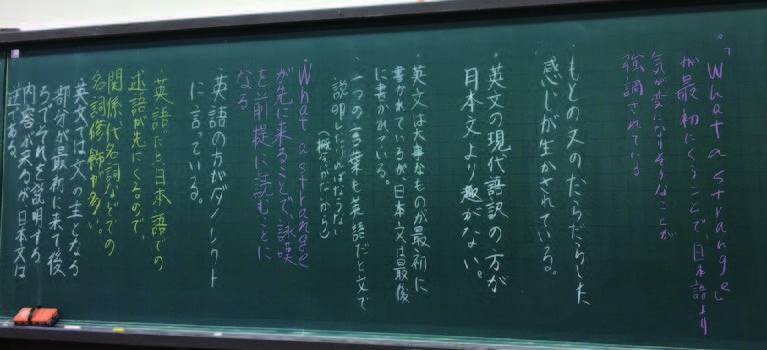 ・「What a strange」
が最初にくることで、日本語より
気が変になりそうなことが
強調されている
・もとの文のだらだらした
感じが生かされている。
・英文の現代語訳の方が
日本文より趣がない。
・英文は大事なものが最初に
書かれているが日本文は最後
に書かれている。
・一つの言葉も英語だと文で
説明しなければならない
(概念がないから)
・What a strange
が先に来ることで、詠嘆
を前提に読むことに
なる
・英語の方がダイレクト
に言っている。
・英語だと日本語での
述語が先にくるので、
関係代名詞などでの
名詞修飾が多い。
・英文では文の主となる
部分が最初に来て後
ろでそれを説明する
内容が来るが日本文は
逆である。